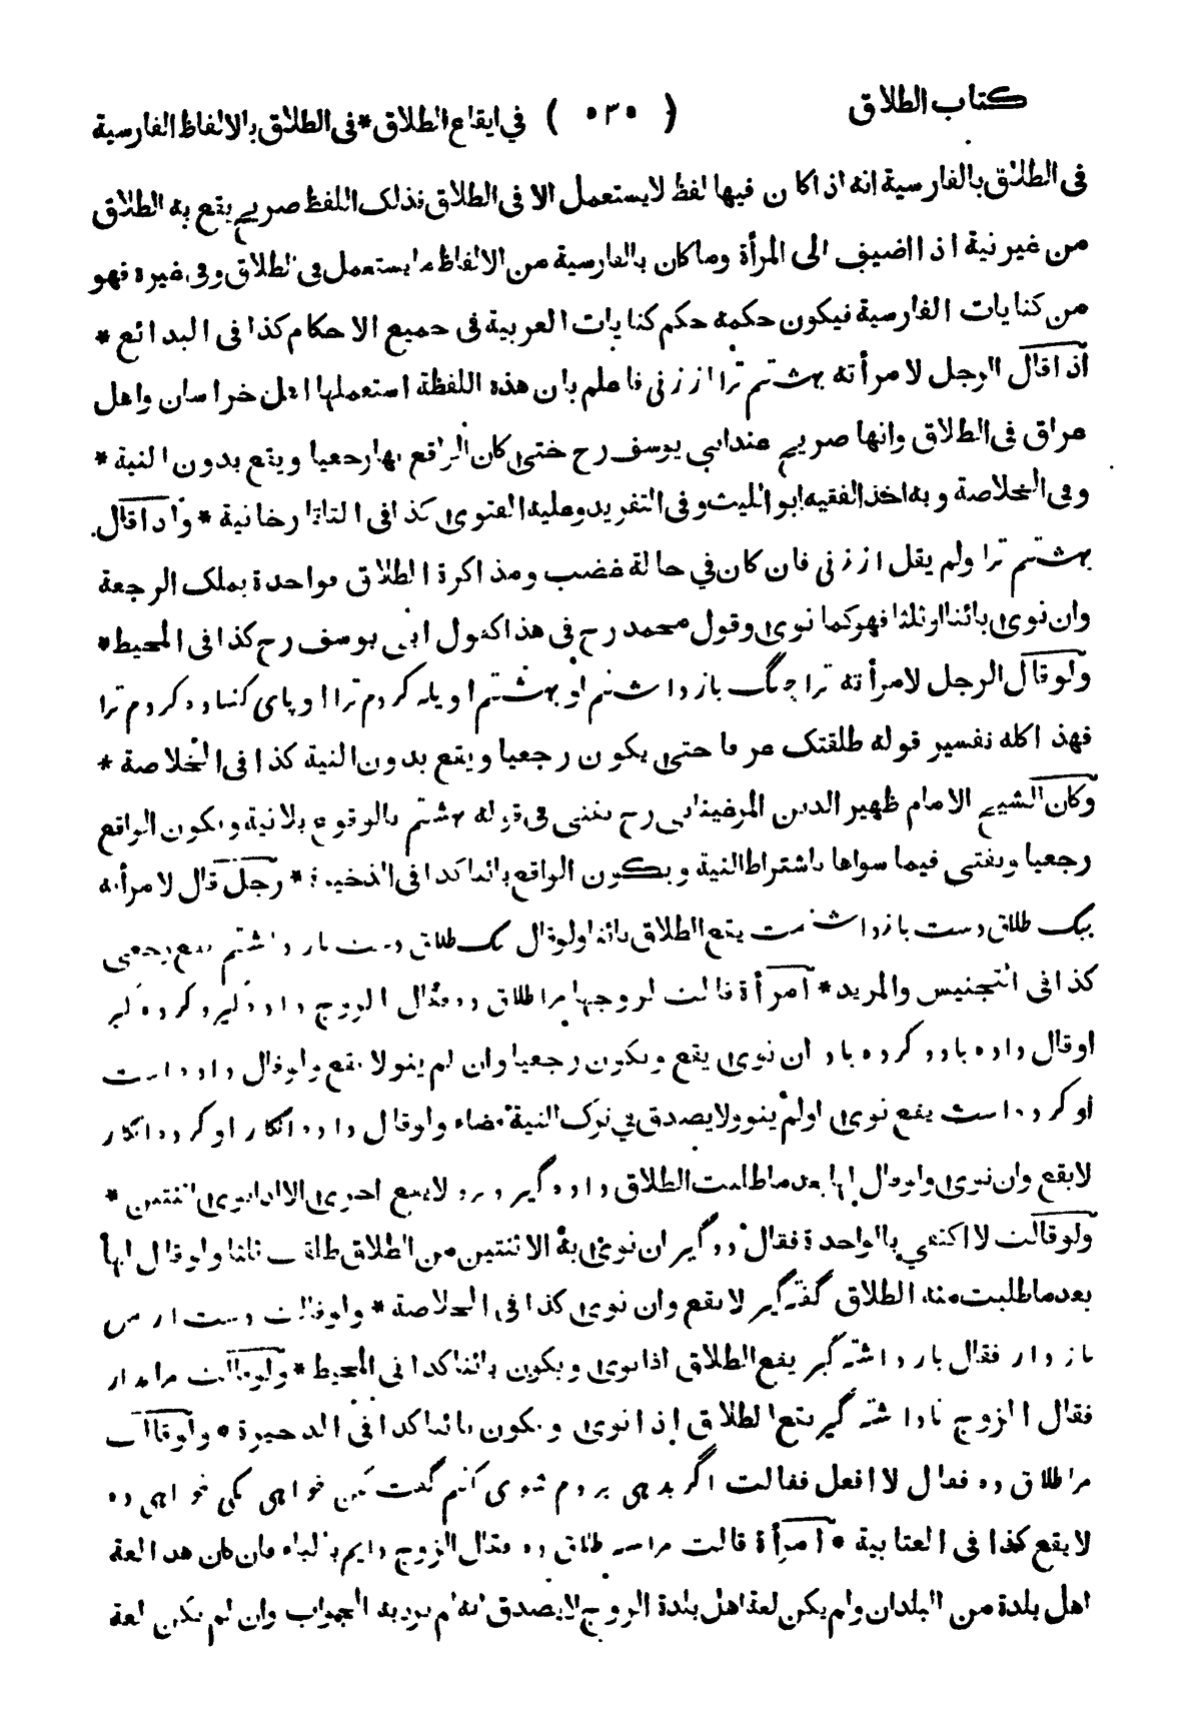 كتاب الطلاق
( ٥٣٥ ) في ايقاع الطلاق * فى الطلاق بالالفاظ الفارسية
فى الطلاق بالفارسية انه اذا كان فيها لفظ لايستعمل الا فى الطلاق فذلك اللفظ صريح يقع به الطلاق
من غير نية اذا اضيف الى المرأة وما كان بالفارسية من الالفاظ ما يستعمل فى الطلاق وفى غيره فهو
من كنايات الفارسية فيكون حكمه حكم كنايات العربية فى جميع الاحكام كذا فى البدائع *
اذا قال الرجل لامرأته بهشتم ترا از زنى فاعلم بان هذه اللفظة استعملها اهل خراسان واهل
عراق فى الطلاق وانها صريح عند ابى يوسف رح حتى كان الواقع بها رجعيا ويقع بدون النية *
وفى الخلاصة وبه اخذ الفقيه ابو الليث وفى التفريد وعليه الفتوى كذا فى التاتارخانية * واذا قال
بهشتم ترا ولم يقل از زنى فان كان في حالة غضب ومذاكرة الطلاق فواحدة يملك الرجعة
وان نوى بائنا او ثلثا فهو كما نوى وقول محمد رح فى هذا كقول ابى يوسف رح كذا فى المحيط *
ولو قال الرجل لامرأته ترا چنگ باز داشتم او بهشتم او يله كردم ترا او پاى كشاده كردم ترا
فهذا كله تفسير قوله طلقتك عرفا حتى يكون رجعيا ويقع بدون النية كذا فى الخلاصة *
وكان الشيخ الامام ظهير الدين المرغينانى رح يفتى فى قوله بهشتم بالوقوع بلانية ويكون الواقع
رجعيا ويفتى فيما سواها باشتراط النية ويكون الواقع بائنا كذا فى الذخيرة * رجل قال لامرأته
بيك طلاق دست باز داشتمت يقع الطلاق بائنا ولو قال يك طلاق دست باز داشتم يقع رجعى
كذا فى التجنيس والمزيد * امرأة قالت لزوجها مرا طلاق ده فقال الزوج داده گير و كرده گير
او قال داده باد و كرده باد ان نوى يقع ويكون رجعيا وان لم ينو لا يقع ولو قال داده است
او كرده است يقع نوى او لم ينو ولا يصدق في ترك النية قضاء ولو قال داده انگار او كرده انگار
لايقع وان نوى ولو قال لها بعد ما طلبت الطلاق داده گير و لايقع اخرى الا اذا نوى اثنتين *
ولو قالت لا اكتفي بالواحدة فقال دو گير ان نوى به الاثنتين من الطلاق طلقت ثلثا ولو قال لها
بعد ما طلبت منه الطلاق گفته گير لا يقع وان نوى كذا فى الخلاصة * ولو قالت دست از من
باز دار فقال باز داشته گير يقع الطلاق اذا نوى ويكون بائنا كذا فى المحيط * ولو قالت مرا
فقال الزوج باز داشته گير يقع الطلاق اذا نوى ويكون بائنا كذا فى الذخيرة * ولو قالت
مرا طلاق ده فقال لا افعل فقالت اگر بروم شوى كنم گفت خواهى يكى خواهى ده
لا يقع كذا فى العتابية * امرأة قالت مرا سه طلاق ده فقال الزوج فان كان هذا لغة
اهل بلدة من البلدان ولم يكن لغة اهل بلدة الزوج لايصدق انه لم يرد به الجواب وان لم يكن لغة